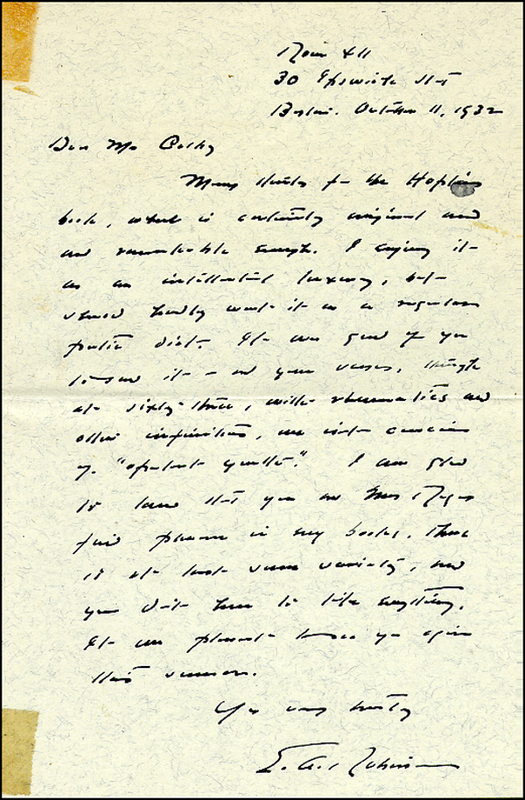 30 Ipswich St
Boston. October 11, 1932
Dear Mr
Many thanks for the Hopkins
book, which is certainly original and
and remarkable enough. I enjoy it
as an intellectual luxury, but
should hardly want it as a regular
poetic diet. It was good of you
to send it – and your verses, though
at sixty-three, with rheumatics and
other infirmities, am
of I am glad
to know that you and Mrs
find pleasure in my books. There
is at least some variety, and
you don't have to like everything.
It was pleasant to see you again
this summer.
Yours very truly
E. A. Robinson